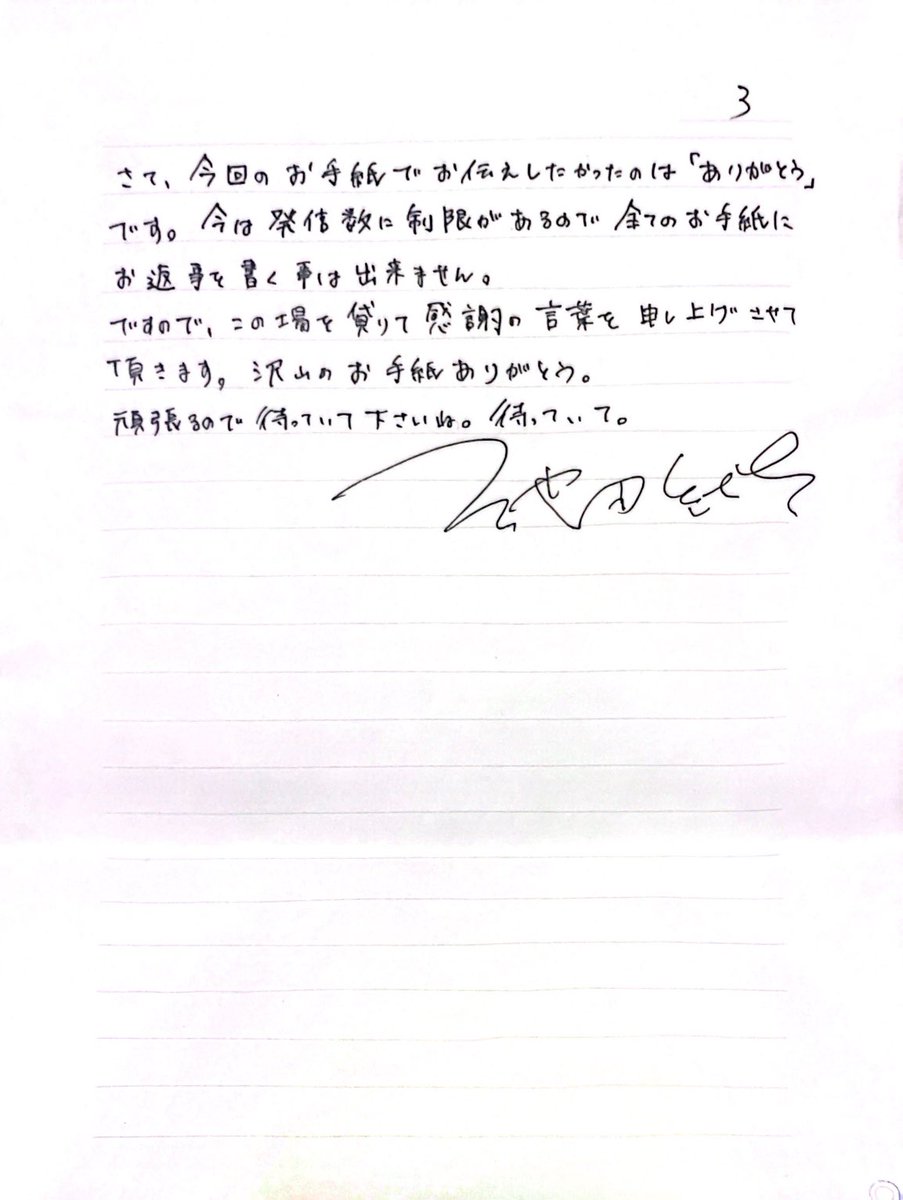 3
さて、今回のお手紙でお伝えしたかったのは「ありがとう」
です。今は発信数に制限があるので全てのお手紙に
お返事を書く事は出来ません。
ですので、この場を貸りて感謝の言葉を申し上げさせて
頂きます。沢山のお手紙ありがとう。
頑張るので待っていて下さいね。待っていて。